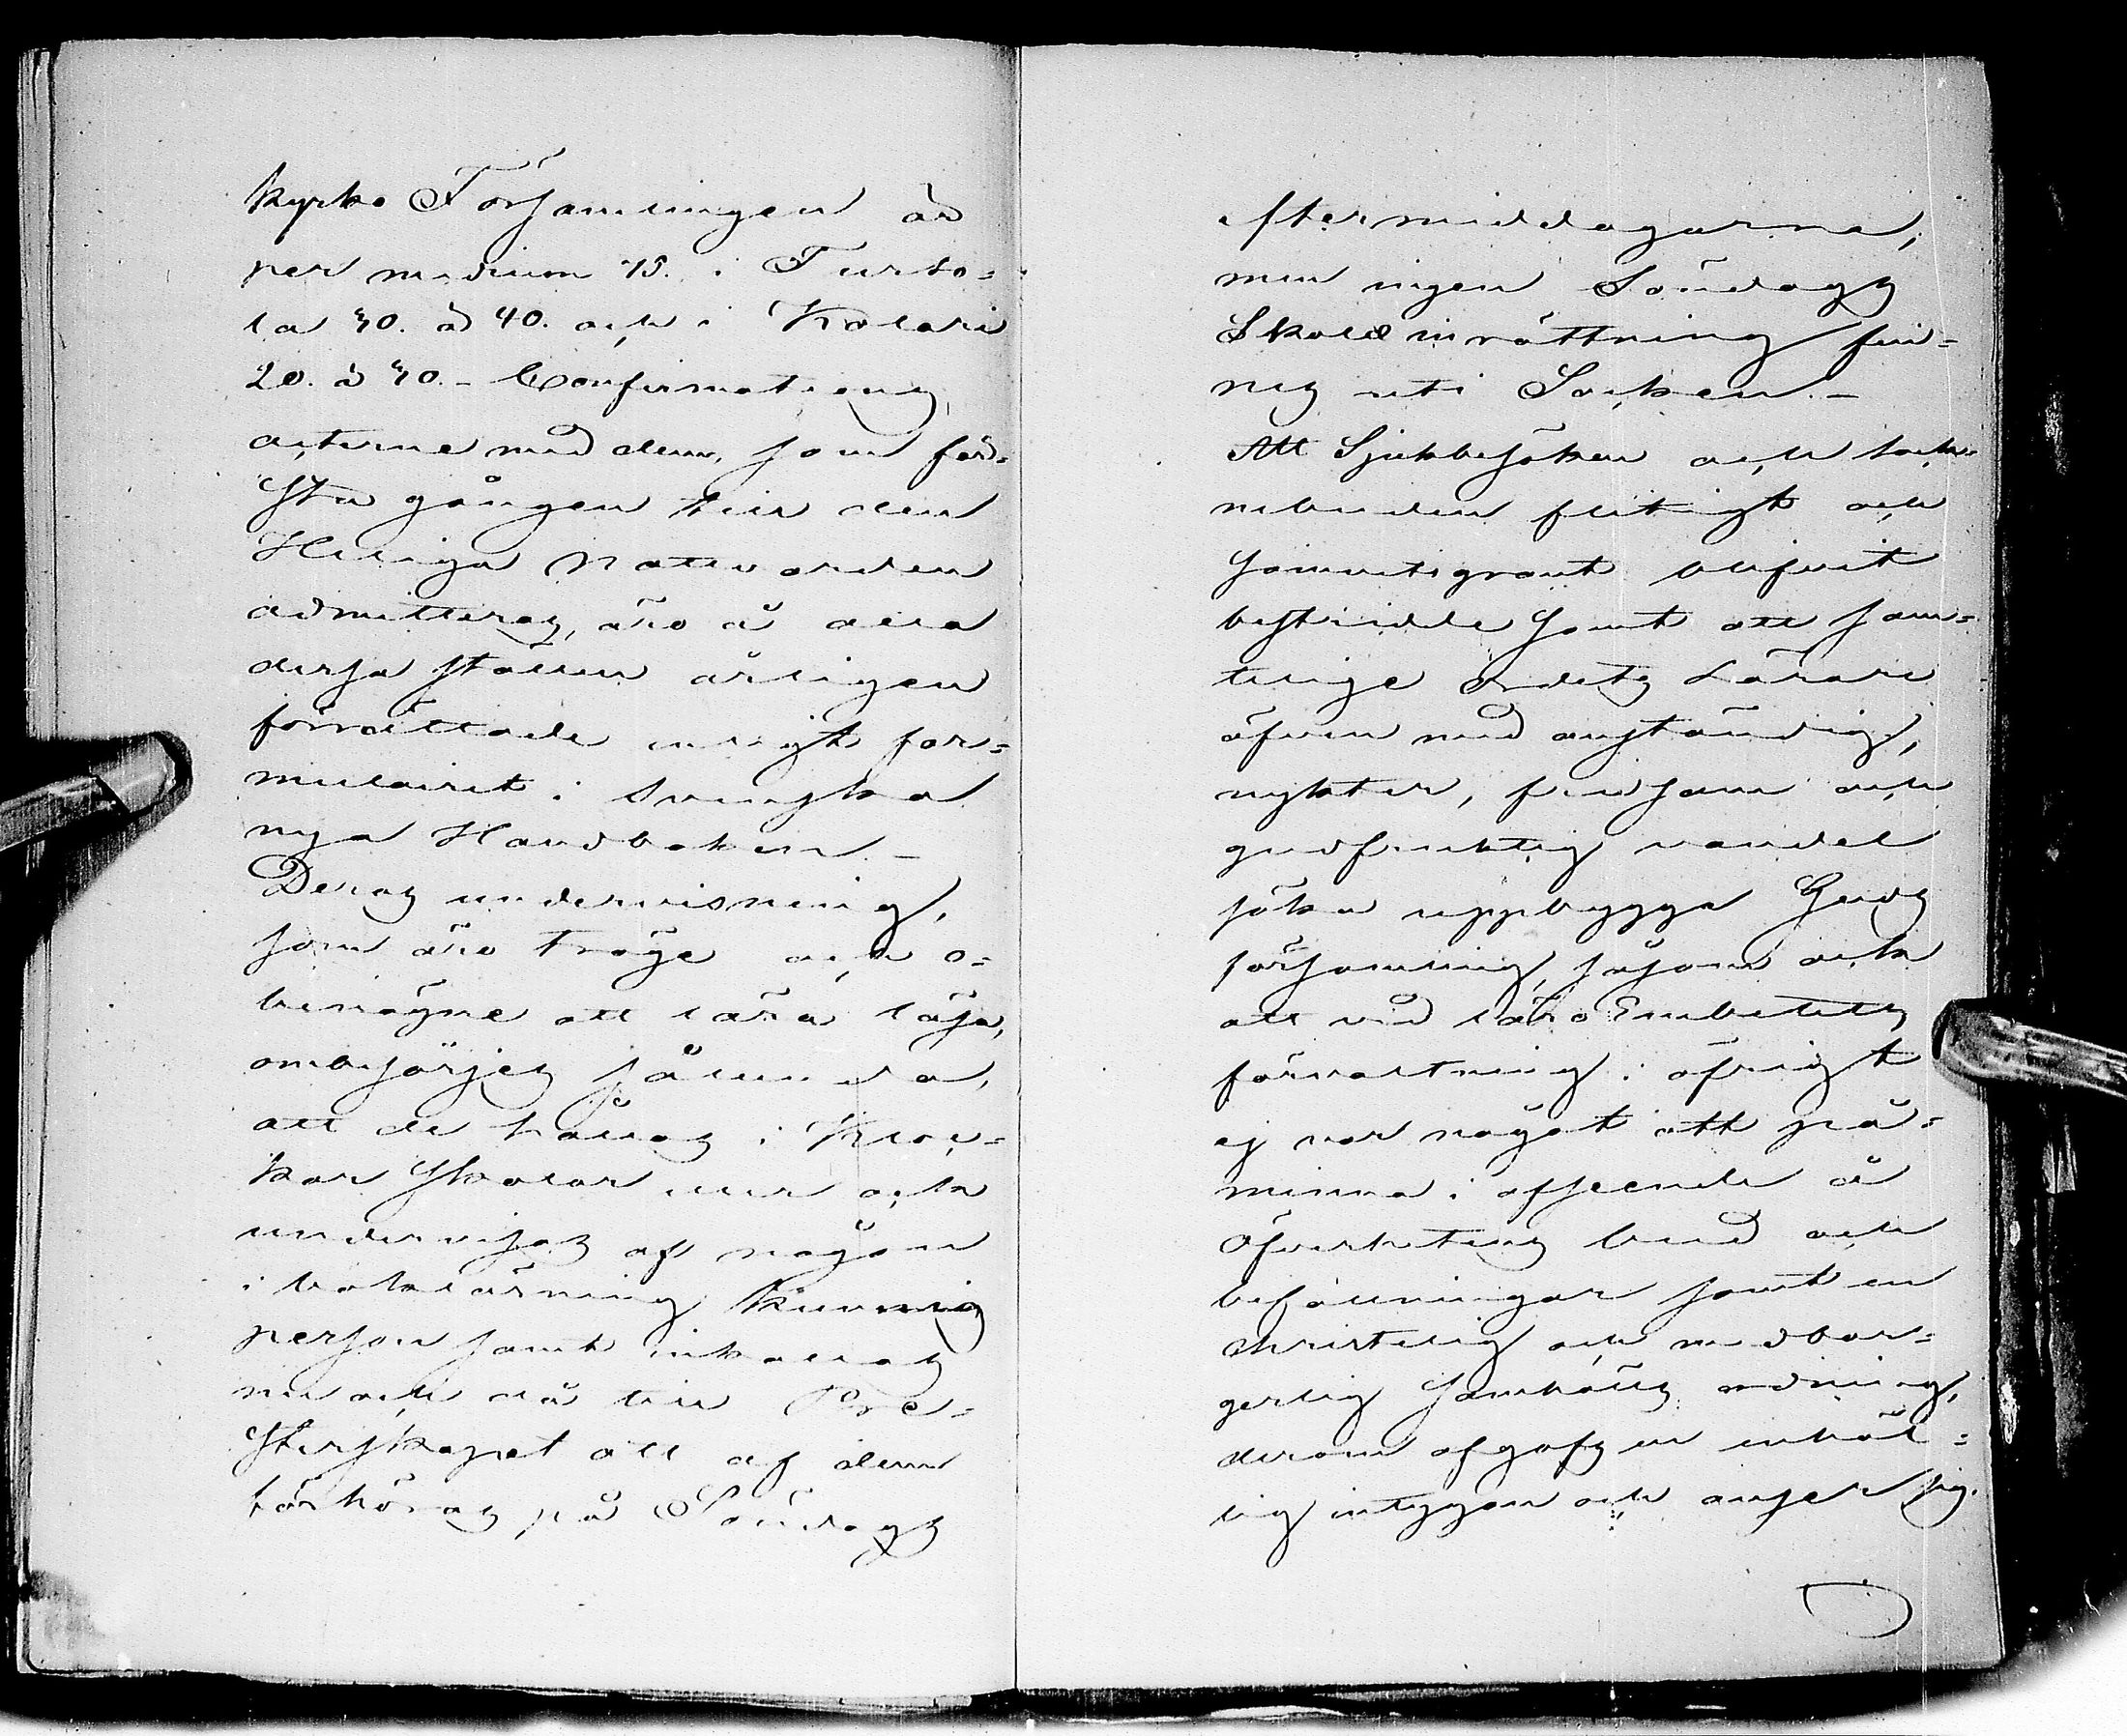 kyrko Församlingen är
per medium 75. i Turto=
la 30. à 40. och i Kolari
20. à 30. – Confirmations
acterne med dem, som för=
sta gången till den
Heliga Nattvarden
admitteras, äro å alla
dessa ställen årligen
förrättade enligt for=
mulairet i Svenska
nya Handboken. –
Deras undervisning,
som äro tröge och o=
benägne att lära läsa,
ombesörjes sålunda,
att de hållas i Kloc=
kar Skolar eller och
undervisas af någon
i boklärning kunnig
person samt inkallas
nu och då till Pre=
sterskapet att af dem
förhöras på Söndags
eftermiddagarne,
men ingen Söndags
Skole inrättning fin=
nes uti Socken. –
Att Sjukbesöken och sock=
nebuden flitigt och
samvetsgrant blifvit
bestridde samt att sam=
telige Ordets Lärare
äfven med anständig,
nykter, fredsam och
gudfruktig vandel
söka uppbygga Guds
församling, såsom och
att vid läro Embetets
förvaltning i öfrigt
ej var något att på=
minna i afseende å
Öfverhetens bud och
befallningar samt en
christelig och medbor=
gerlig Samhälls ordning,
derom afgafs en enhäl=
lig intygan och anser sig